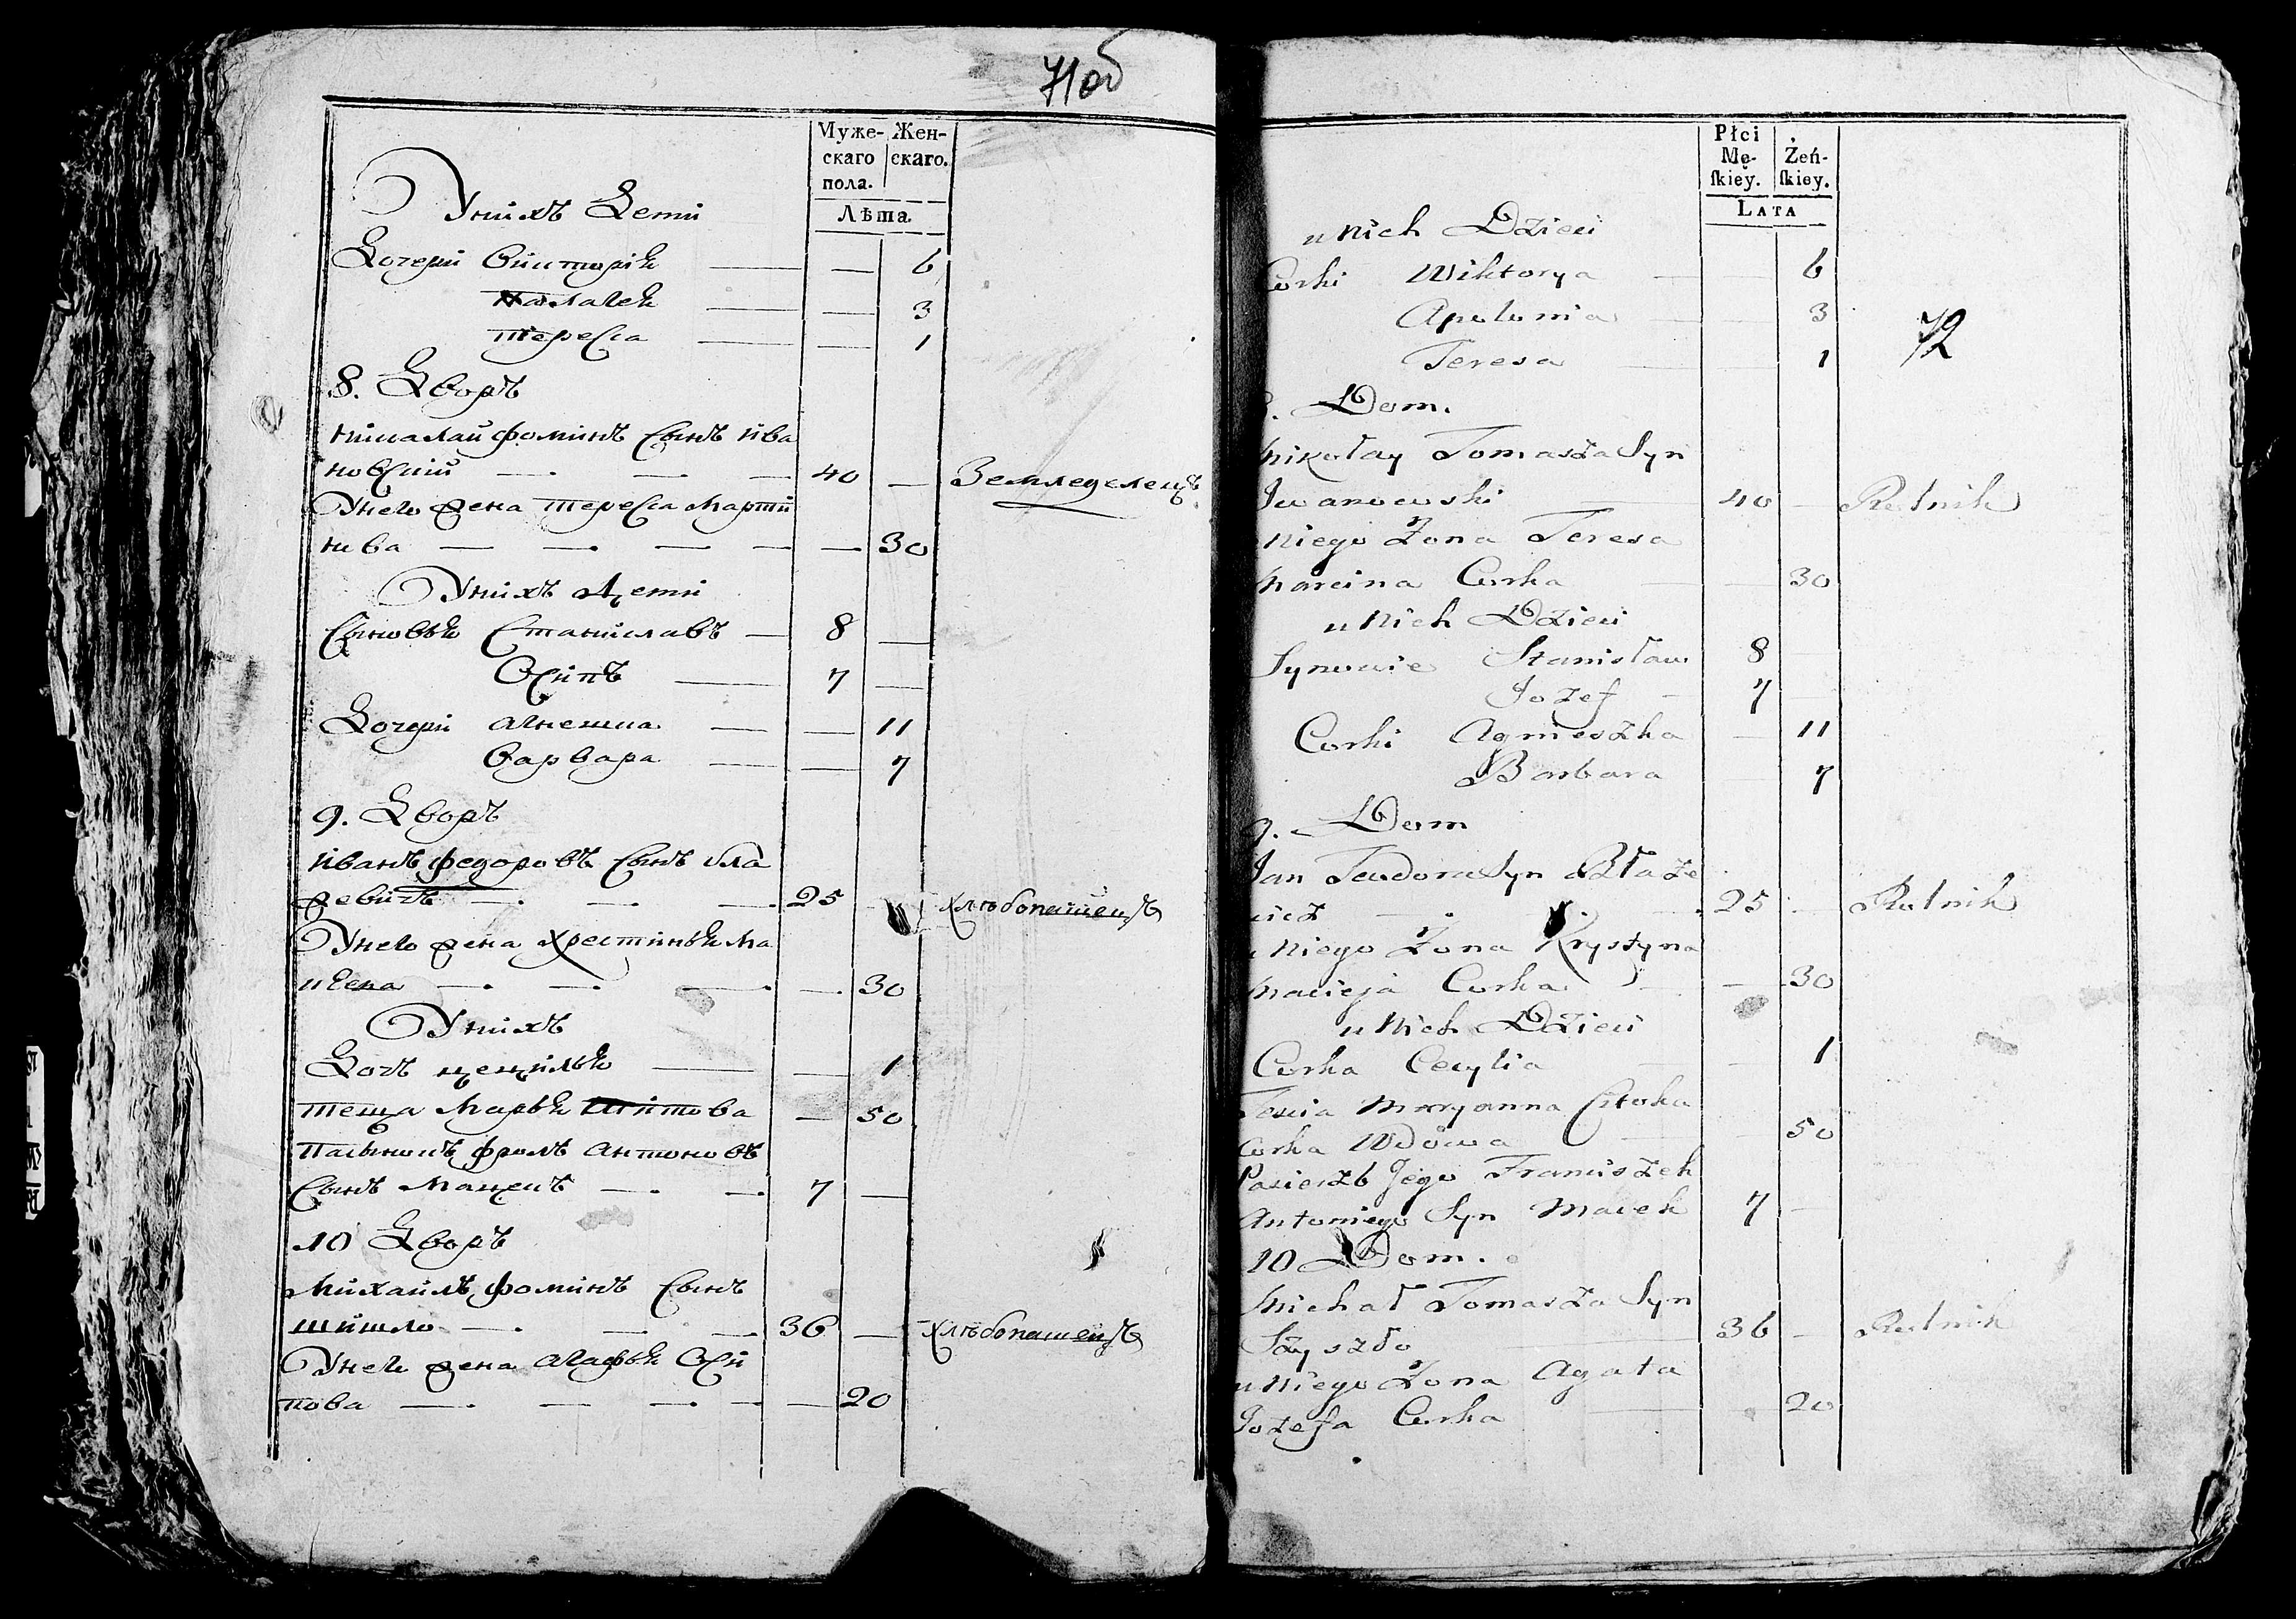 71об
Муже- Жен-
скаго скаго.
пола.
Лѣта
У нихъ Дети
Дочери Викторія — — 6
— — 3
Тереса — — 1
8. Дворъ
Николай Фоминъ Сынъ Ива
новский — — — 40 — Земледелецъ
У него жена Тереса Марти
нова — — — — — 30
У нихъ Дети
Сыновья Станиславъ — 8 —
Осипъ — 7 —
Дочери Агнешка — — 11
Варвара — — 7
9. Дворъ
Иванъ Федоровъ Сынъ Бла
жевичъ — — — 25 — хлѣбопашецъ
У него жена Христинья Ма
— — — — 30
У нихъ
Дочъ Цецилья — — 1
Теща Марья — 50
Пасынокъ Фролъ Антоновъ
Сынъ Мацекъ — — 7 —
10 Дворъ
Михаилъ Фоминъ Сынъ
Шишло — — — 36 — хлѣбопашецъ
У него жена Агафья Оси
пова — — — — — 20
72
Płci
Mę- Żeń-
ſkiey. ſkiey.
LATA
u Nich Dzieci
Corki Wiktorya — — 6
Apolonia — — 3
Teresa — — 1
8. Dom.
Mikołay Tomasza Syn
Iwanowski — 40 — Rolnik
Niego Zona Teresa
Marcina Corka — — 30
u Nich Dzieci
Synowie Stanisław 8 —
Jozef — 7 —
Corki Agnieszka — 11
Barbara — 7
9. Dom
Jan Teodora Syn Błaże
wicz — — — 25 — Rolnik
u Niego Zona Krystyna
Macieja Corka — — 30
u Nich Dzieci
Corka Cecylia — — 1
Maryanna
Corka Wdowa — — 50
Pasierzb Jego Franciszek
Antoniego Syn Macek 7 —
10 Dom.
Michał Tomasza Syn
Szyszło — 36 — Rolnik
u Niego Zona Agata
Jozefa Corka — 20